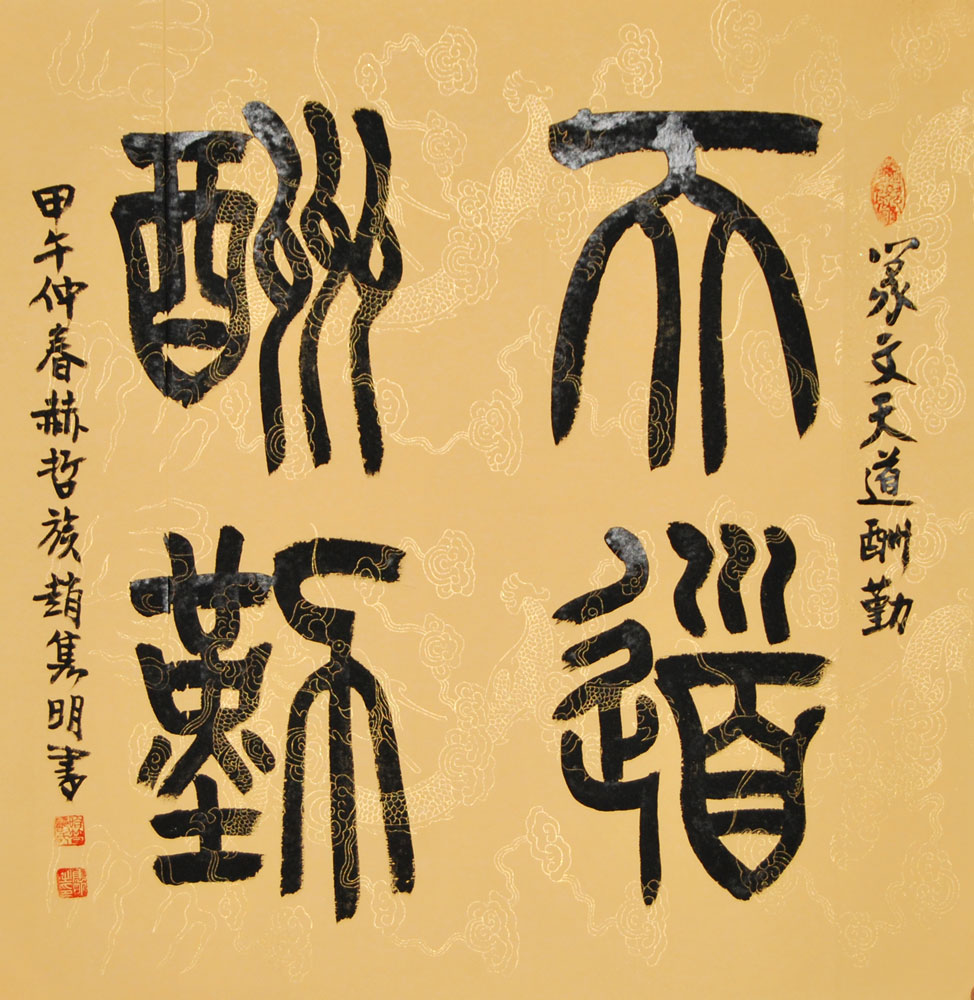 篆文天道酬勤
天道
酬勤
甲午仲春赫哲族趙隽明書